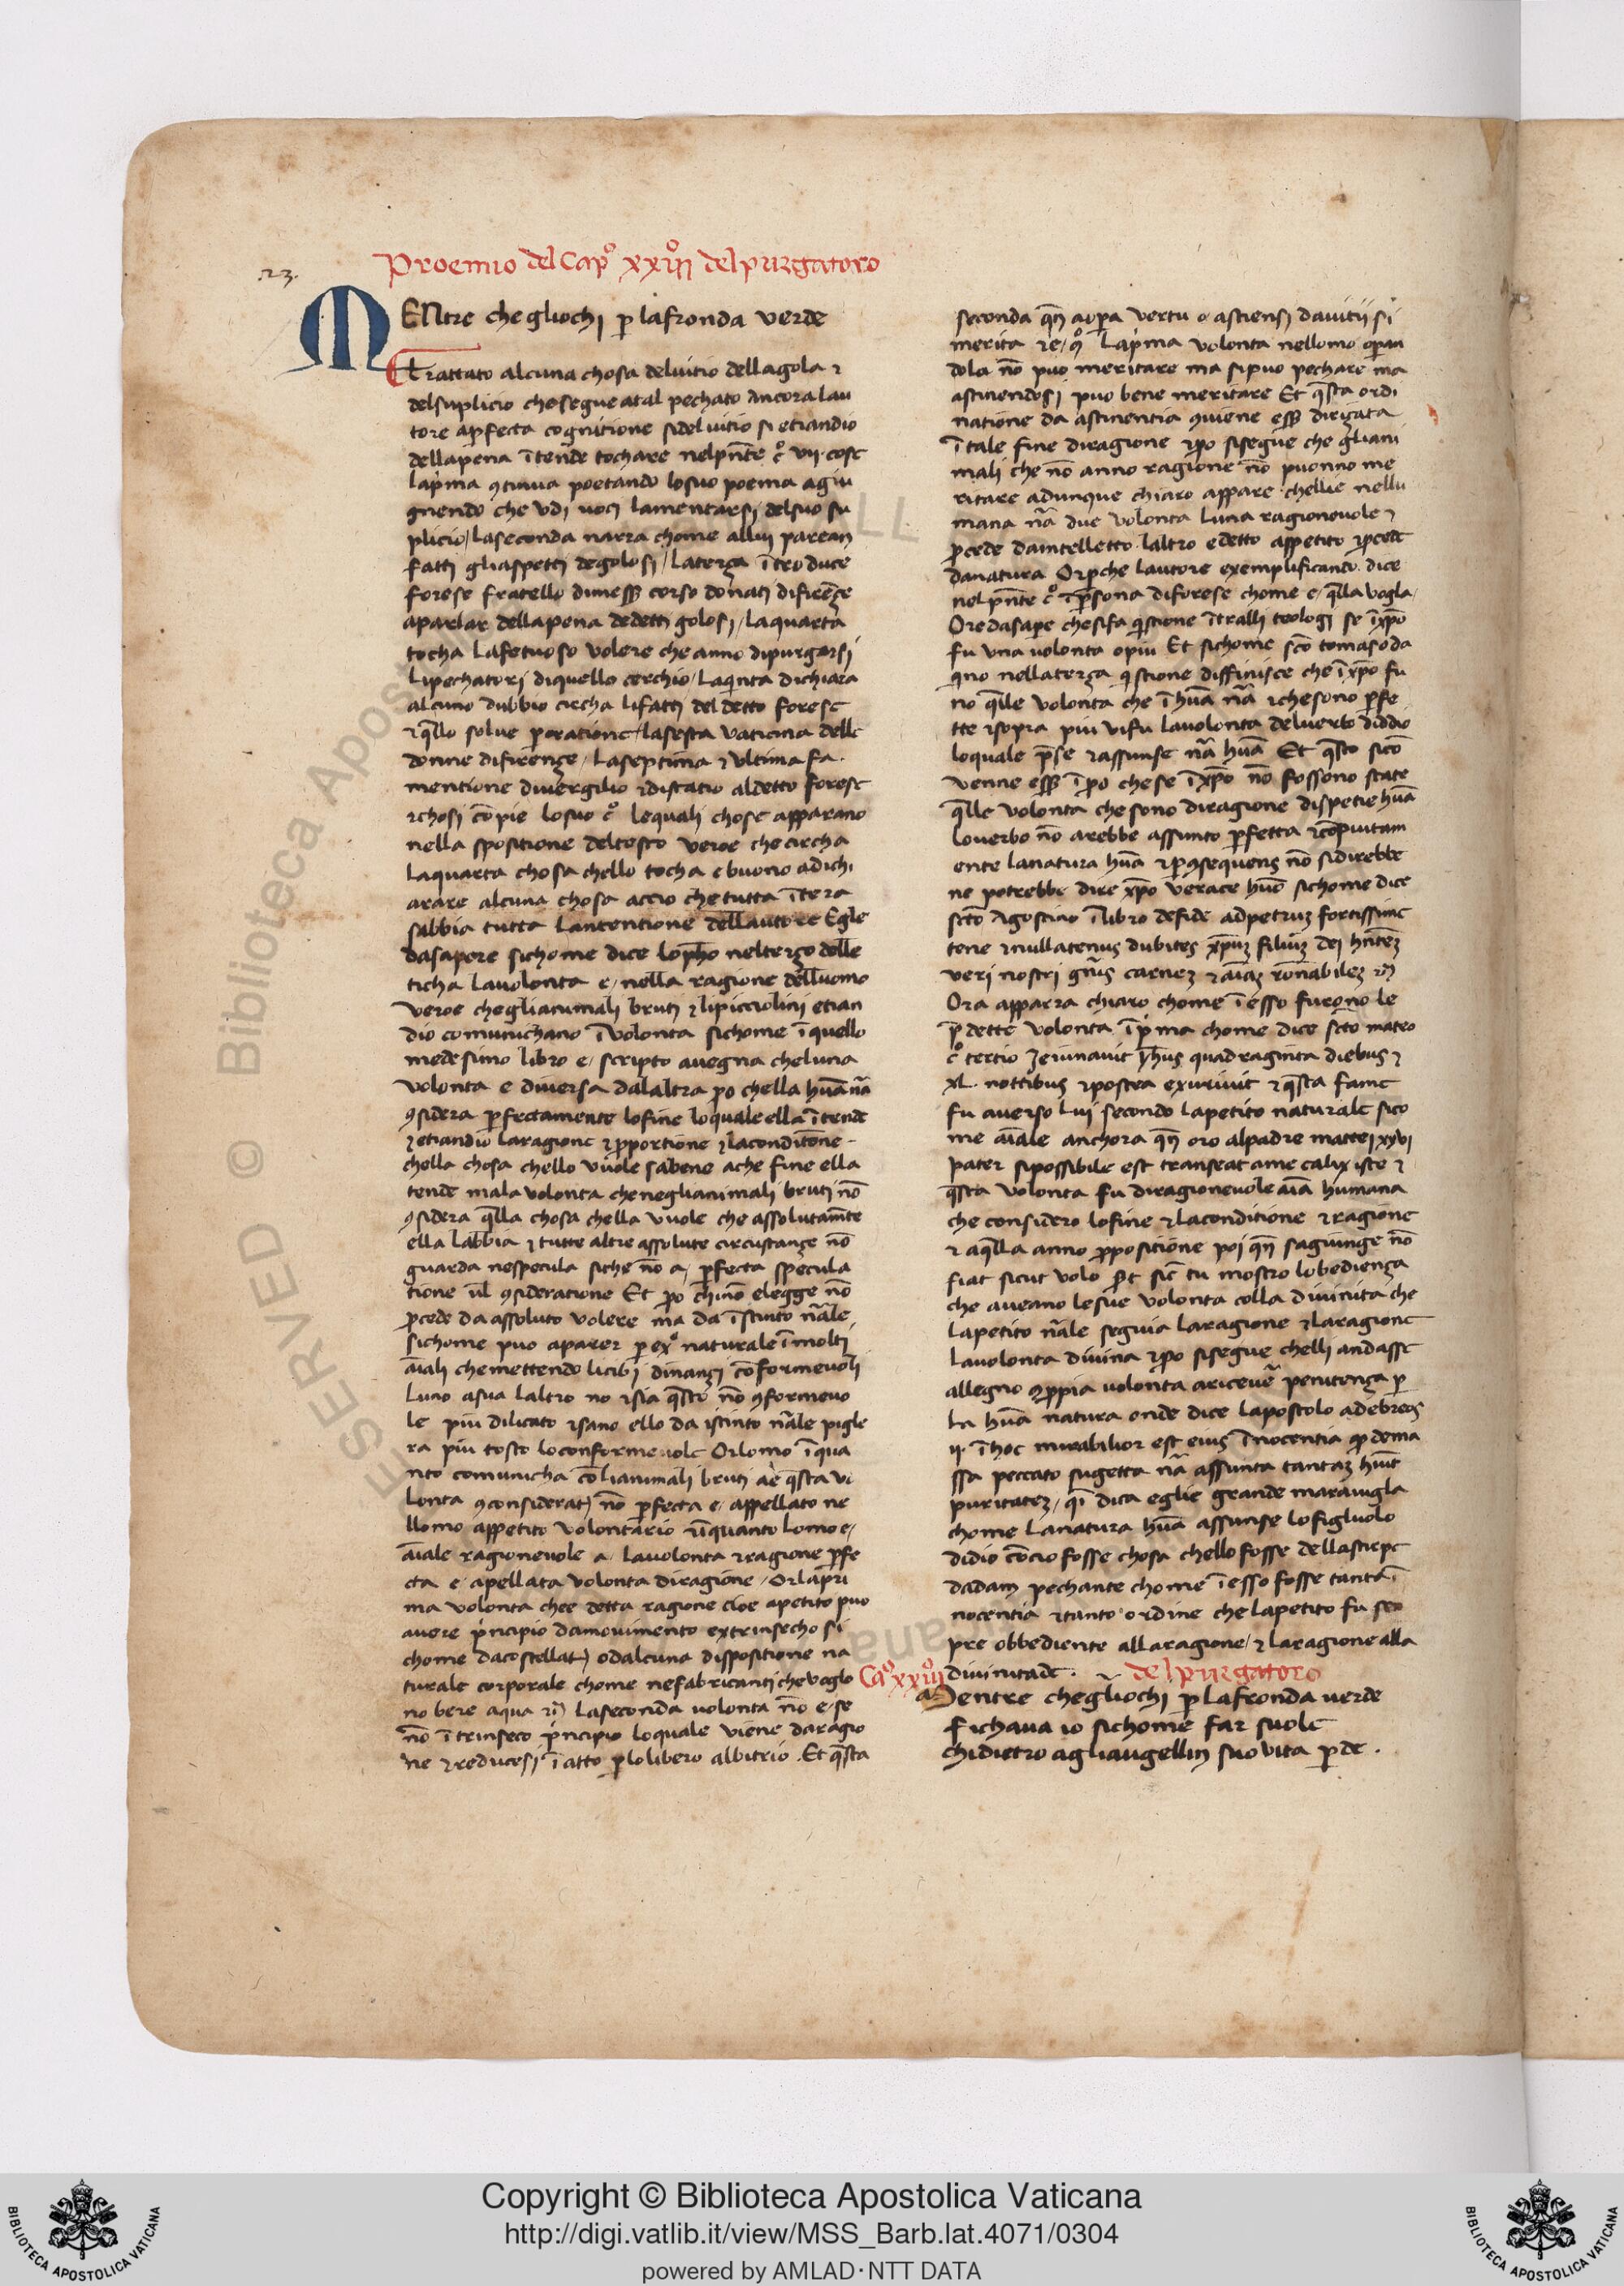 Proemio del Capº xxiijº del purgatoro
.23.
MENtre che gliochi p̱ lafronda verde
Trattato alcuna chosa deluitio dellagola ⁊
delsuplicio chesegue atal pechato Ancora lau
tore ap̱fecta cognitione sideluitio si etiandio
dellapena ītende tochare nelpn̄te cº vij. cose
lap̍ma ꝯtinua poetando losuo poema agiu
gnendo che vdi uoci lamentarsi delsuo su
plicio/ laseconda narra chome allui parean
fatti gliaspetti degolosi/ laterza ītroduce
forese fratello dimess̄ corso donati difirēze
aparlar dellapena dedetti golosi/ laquarta
tocha lafetuoso volere che anno dipurgarsi
lipechatori diquello cerchio/ laq̍nta dichiara
alcuno dubbio circha lifatti del detto forese
⁊q̄llo solue p̱oratione/ lasesta vaticina delle
donne difirenze/ laseptima ⁊vltima fa.
mentione diuergilio ⁊distatio aldetto forese
⁊chosi cōpie losuo cº lequali chose apparano
nella spositione deltesto veroe che circha
laquarta chosa chello tocha e buono adichi
arare alcuna chosa accio che tutta ītera
sabbia tutta lantentione dellautore Egle
dasapere sichome dice lopħo nelterzo delle
ticha lauolonta e/ nella ragione delluomo
veroe chegliaiumali bruti ⁊lipicciolini etian
dio comunichano ī volonta sichome ī quello
medesimo libro e/ scripto auegna cheluna
volonta e diuersa dalaltra p̱o chella huāa nā
ꝯsidera p̱fectamente lofine loquale ella ītende
⁊etiandio laragione ⁊p̱portione ⁊laconditione
chella chosa chello vuole sabene ache fine ella
tende mala volonta chenegliaiimali bruti nō
ꝯsidera q̄lla chosa chella vuole che assolutam̄te
ella labbia ⁊ tutte altre assolute circustanze nō
guarda nespecula siche nō a/ p̱fecta specula
tione ul̄ ꝯsideratione Et p̱o chīnō elegge nō
p̱cede da assoluto volere ma da īstinto nāle
sichome puo aparer p̱ exº naturale ī molti
aīali chemettendo licibi dinanzi cōformeuoli
luno asua laltro no ⁊sia q̄sto nō ꝯformeuo
le piu dilicato ⁊sano ello da istinto nāle pigle
ra piu tosto loconformeuole Orlomo īqua
nto comunicha cōlianimali bruti ae q̄sta vo
lonta ꝯconsiderat̄ nō p̱fecta e/ appellato ne
llomo appetito volontario ⁊īquanto lomo e/
aīale ragioneuole a/ lauolonta ⁊ragione p̱fe
cta e/ apellata volonta diragione/ Orlap̱ri
ma volonta chee detta ragione cioe apetito puo
auere p̍ncipio damouimento extrinsecho si
chome dacostellat̄ odalcuna dispositione na
turale corporale chome nefabricanti chevoglo
no bere aqua ⁊c̄ Laseconda uolonta nō e/ se
nō ītrinseco p̍ncipio loquale viene daragio
ne ⁊reducesi ī atto p̱lolibero albitrio. Et q̄sta
seconda qn̄ aop̱a vertu o astiensi dauitii si
merita ⁊e/ ꝯº lap̍ma volonta nellomo op̱an
dola nō puo meritare ma sipuo pechare ma
astinendosi puo bene meritare Et q̄sta ordi
natione da astinentia ꝯuiene ess̄ dirizata
ī tale fine diragione ⁊p̱o sisegue che gliani
mali che nō anno ragione nō puonno me
ritare adunque chiaro appare chellie nellu
mana nā due volonta luna ragioneuole ⁊
p̱cede daintelletto laltro edetto appetito ⁊p̱cede
danatura Orp̱che lautore exemplificando dice
nelpn̄te cº īp̱sona diforese chome e/ q̄lla vogla/
Ore dasap̱e chesifa q̍stione ītralli teologi se īxp̄o
fu vna uolonta opiu Et sichome sc̄o tomaso da
q̍no nellaterza q̍stione diffinisce che īxp̄o fu
no q̄lle volonta che īhuā nā ⁊chesono p̱fe
tte ⁊sopra piu vifu lauolonta deluerbo didio
loquale p̄se ⁊assunse nā huā Et q̄sto sicō
venne ess̄ īp̱o che se īxp̄o nō fossono state
q̄lle volonta che sono diragione dispetie huā
louerbo nō arebbe assunto p̱fetta ⁊cōpiutam
ente lanatura huā ⁊p̱ꝯsequens nō sidirebbe
ne potrebbe dire xp̄o verace huō sichome dice
scto Agostino ī libro defide adpetrum fortissime
tene ⁊nullatenus dubites xp̄um filium dei hn̄tem
veri nostri gn̄is carnem ⁊aīam rōnabilem ⁊c̄
Ora apparra chiaro chome īesso furono le
p̄dette volonta īp̍ma chome dice scto mateo
cº tertio Jeiunauit yħus quadraginta diebus ⁊
xl. nottibus ⁊postea exuriuit ⁊q̄sta fame
fu auerso lui secondo lapetito naturale sico
me aīale anchora qn̄ oro alpadre mattei xxvi
pater sipossibile est transeat ame calix iste ⁊
q̄sta volonta fu diragioneuole aīa humana
che considero lofine ⁊laconditione ⁊ragione
⁊ aq̄lla anno p̱positione poi qn̄ sagiunge nō
fiat sicut volo s̄t sic̄ tu mostro lobedienza
che aueano lesue volonta colla diuinita che
lapetito nāle seguia laragione ⁊laragione
lauolonta diuina ⁊p̱o sisegue chelli andasse
allegno ꝯp̱pia volonta ariceue᷑ penitenza p̱
la huā natura onde dice lapostolo adebreos
ij. īhoc mirabilior est eius īnocentia qd̄ dema
ssa peccato sugetta nā assunta tantam huīt
puritatem/ q̍ī dica eglie grande marauigla
chome lanatura huā assunse lofigluolo
didio cōcio fosse chosa chello fosse dellastirpe
dadam pechante chome īesso fosse tanta ī
nocentia ⁊tanto ordine che lapetito fu sen
pre obbediente allaragione/ ⁊laragione alla
diuinitade.
Caº xxiijº del purgatoro
Mentre chegliochi p̱ lafronda uerde
fichaua io sichome far suole
chidietro agliaugellin suo vita p̱de.
Copyright © Biblioteca Apostolica Vaticana
http://digi.vatlib.it/view/MSS_Barb.lat.4071/0304
powered by AMLAD·NTT DATA
BIBLIOTECA APOSTOLICA VATICANA
BIBLIOTECA APOSTOLICA VATICANA